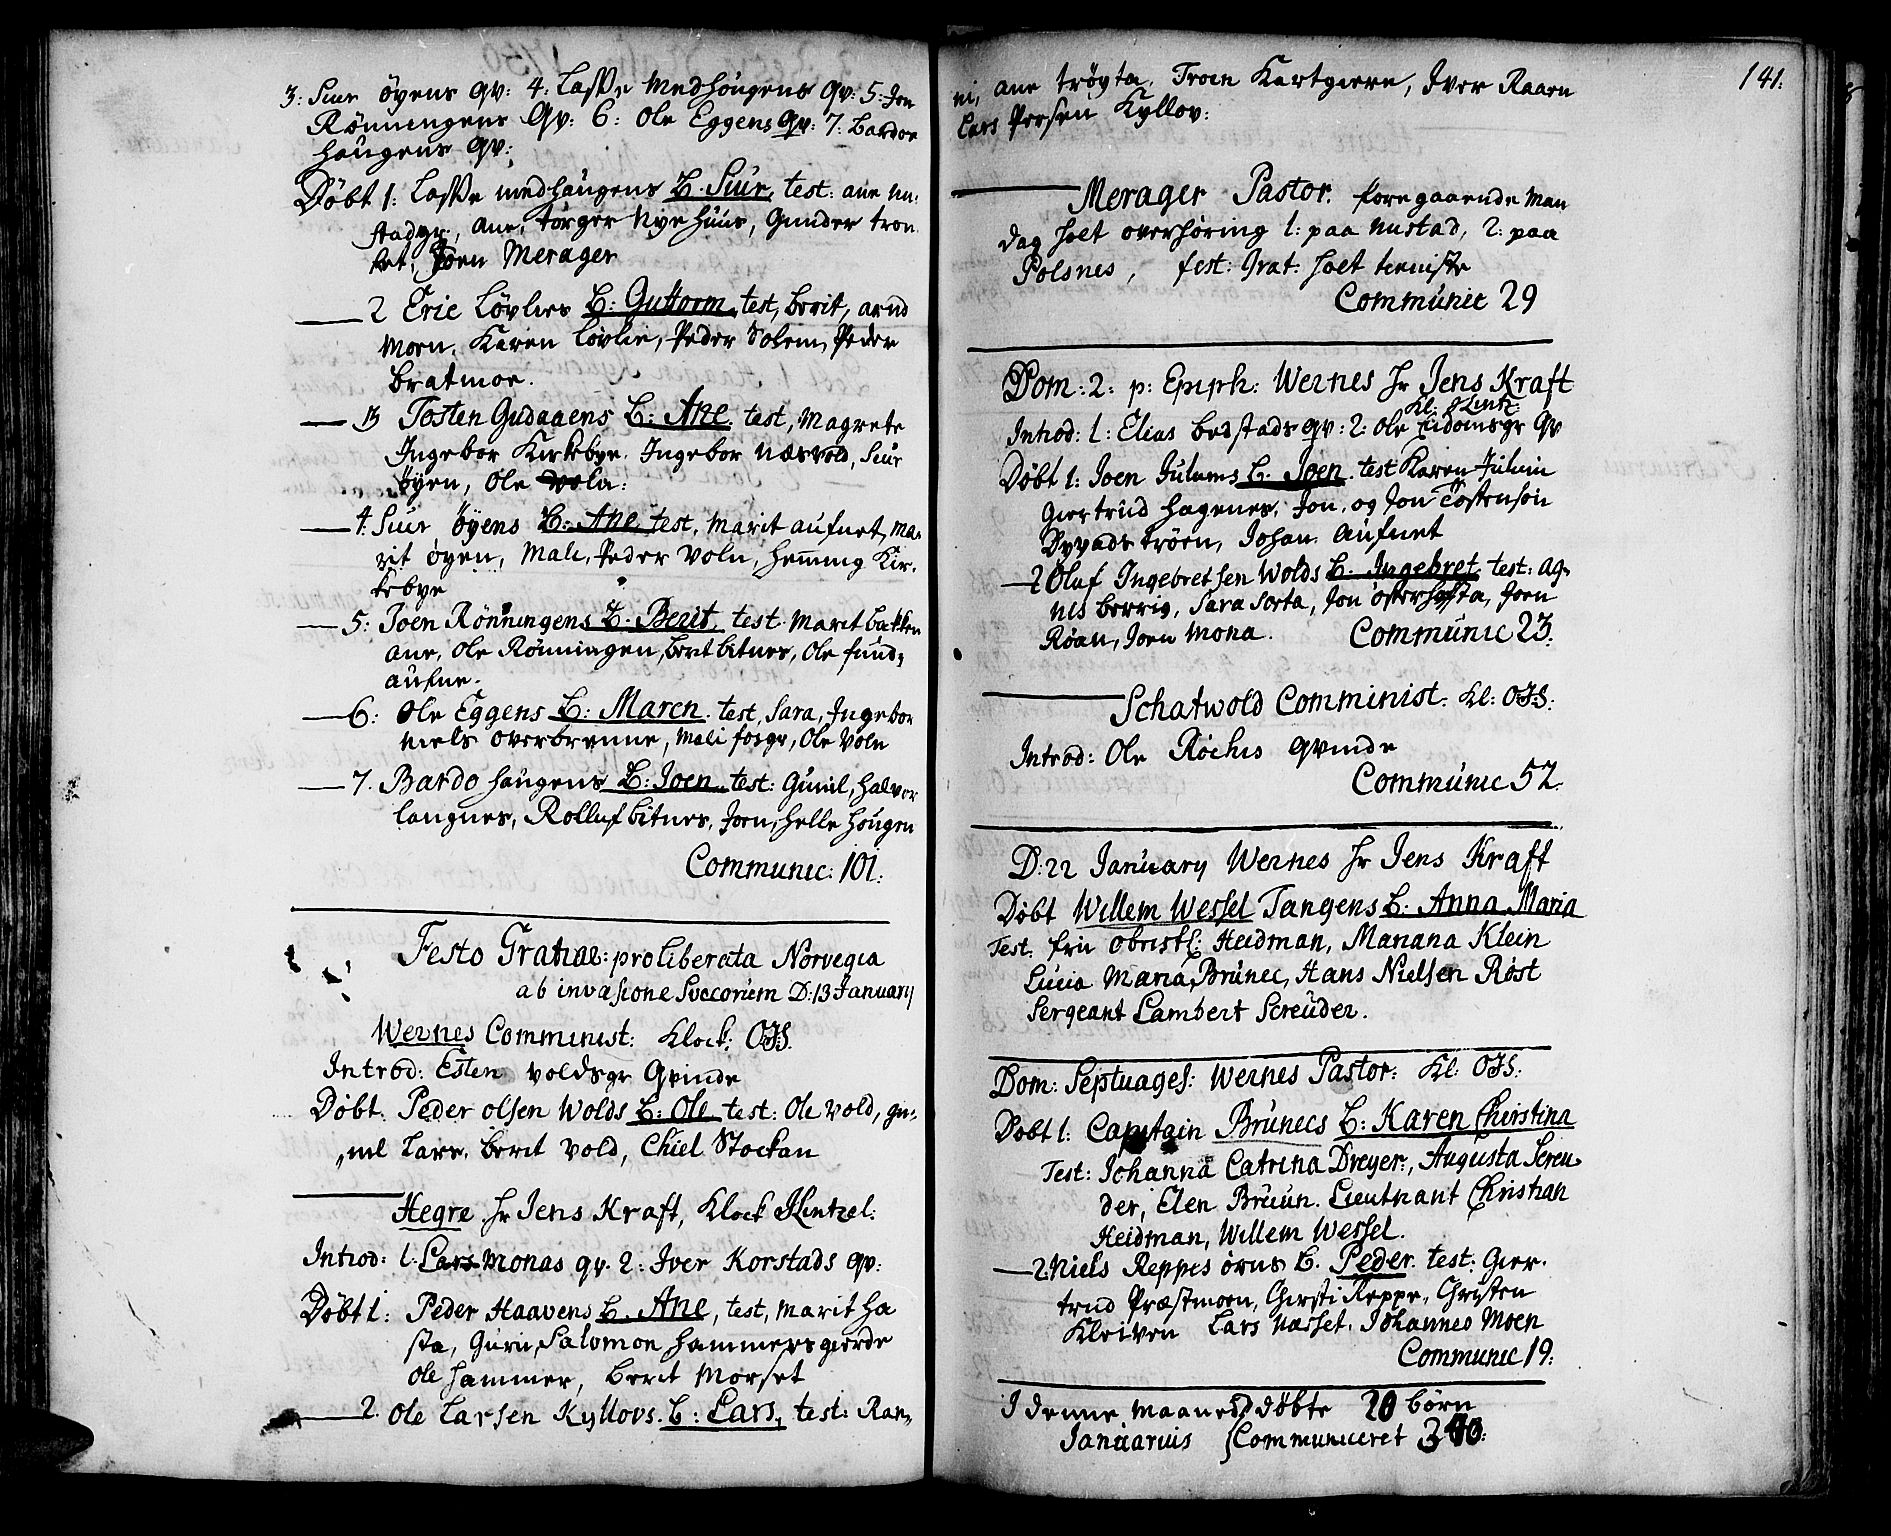 3: Siur öyens qv: 4: Lasse Medhöugens qv: 5: Jon
Rønningens Qv: 6: Ole Eggens qv: 7: Bardoe
haugens qv:
Døbt 1: Lasse medhaugens B. Siur, test: ane nu-
stadgr, ane, törger Nye huus, Gunder tron
ket, Joen Merager
2 Eric Lövlies B: Guttorm test, berit, arnd
moen, Karen Lövlie, Peder Solem, Peder
bratmoe.
3 Tosten Gudaaens B: Ane test, Magrete
Ingebor Kirkebye, Ingebor næsvold, Siur
öyen, Ole voln:
4. Siur öyens B: Ane test, marit aufnet, ma-
rit öyen, mali, Peder voln, hemming Kir-
kebye
5: Joen Rønningens B. Berit, test. marit bakken
ane, ole Rønningen, berit bitnes, ole fund,
aufne.
6: Ole Eggens B: Maren. test, sara, Ingebor
niels overbrenne, mali fosgr, Ole voln
7. Bardo haugens B: Joen test: Gunil, halvor
langnes, Rolluf bitnes, Joen, helle höugen
Communic: 101:
Festo Gratiae: pro liberata Norvegia
ab invasione Svecorum D: 13 January
Wernes Comminist: Klock: OJS.
Introd: Esten voldsgr Qvinde
Døbt. Peder olsen Wolds B: Ole test: Ole vold, gu-
nil Lars, berit vold, Chiel Stockan
Hegre Hr Jens Kraft, Klock Hintzel:
Introd: 1. Lars Monas qv. 2: Iver Korstads qv:
Døbt 1: Peder Haavens B. Ane, test, marit ha
sta, Guru, Salomon hammersgierde
ole hammer, berit Morset
2. Ole Larsen Kyllovs. B: Lars, test: Ran-
141.
ni, ane tröyta, Troen Kartgiere, Iver Raaen
Lars Persen Kyllov:
Merager Pastor. foregaaende Man
dag holt overhöring 1: paa nustad, 2: paa
Polsnes, fest: Grat: holt tieniste
Communic 29
Dom: 2: p: Epiph: Wernes Hr Jens Kraft
Kl: Hintz:
Introd: 1: Elias bedstads qv: 2: ole Eidomsgr Qv
Døbt 1: Joen Julums B. Joen. test Karen Julum
giertrud hagenes, Jon, og Jon Tostensön
Dyvads tröen, Johan aufnet
2 Oluf Ingebretsen Wolds B. Ingebret test: Ag-
nis berrig, Sara Sorta, Jon österhasta, Joen
Röan, Joen mona. Communic 23.
Schatwold Comminist. Kl: OJS:
Introd: Ole Röchis qvinde
Communic 52.
D: 22 January Wernes Hr Jens Kraft
Døbt Willem Wessel Tangens B. Anna Maria
Test. fru obristl: Heidman, Mariana Klein
Lucia Maria Brunec, Hans Nielsen Röst
Sergeant Lambert Screuder.
Dom: Septuages: Wernes Pastor: Kl: OJS:
Døbt 1: Capitain Brunecs B: Karen Chirstina
Test: Johanna Catrina Dreyer, Augusta Screu-
der, Elen Bruun. Lieutnant Christian
Heidman, Willem Wessel.
2. Niels Reppes örns B. Peder. test: Gier-
trud Præstmoen, Chirsti Reppe, Christen
Kleiven Lars næsset. Johannes Moen
Communic 19:
I denne maaned döbte 20 börn
Januarius Communiceret 340: